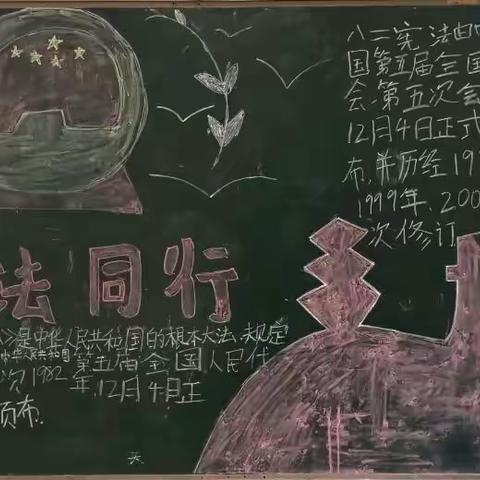 八二宪法由中
国第五届全国
会第五次会
12月4日正式
布,并历经19
1999年、200
次修订
法同行
是中华人民共和国的根本大法 规定
中华人民共和国第五届全国人民代
次1982年12月4日正
颁布.